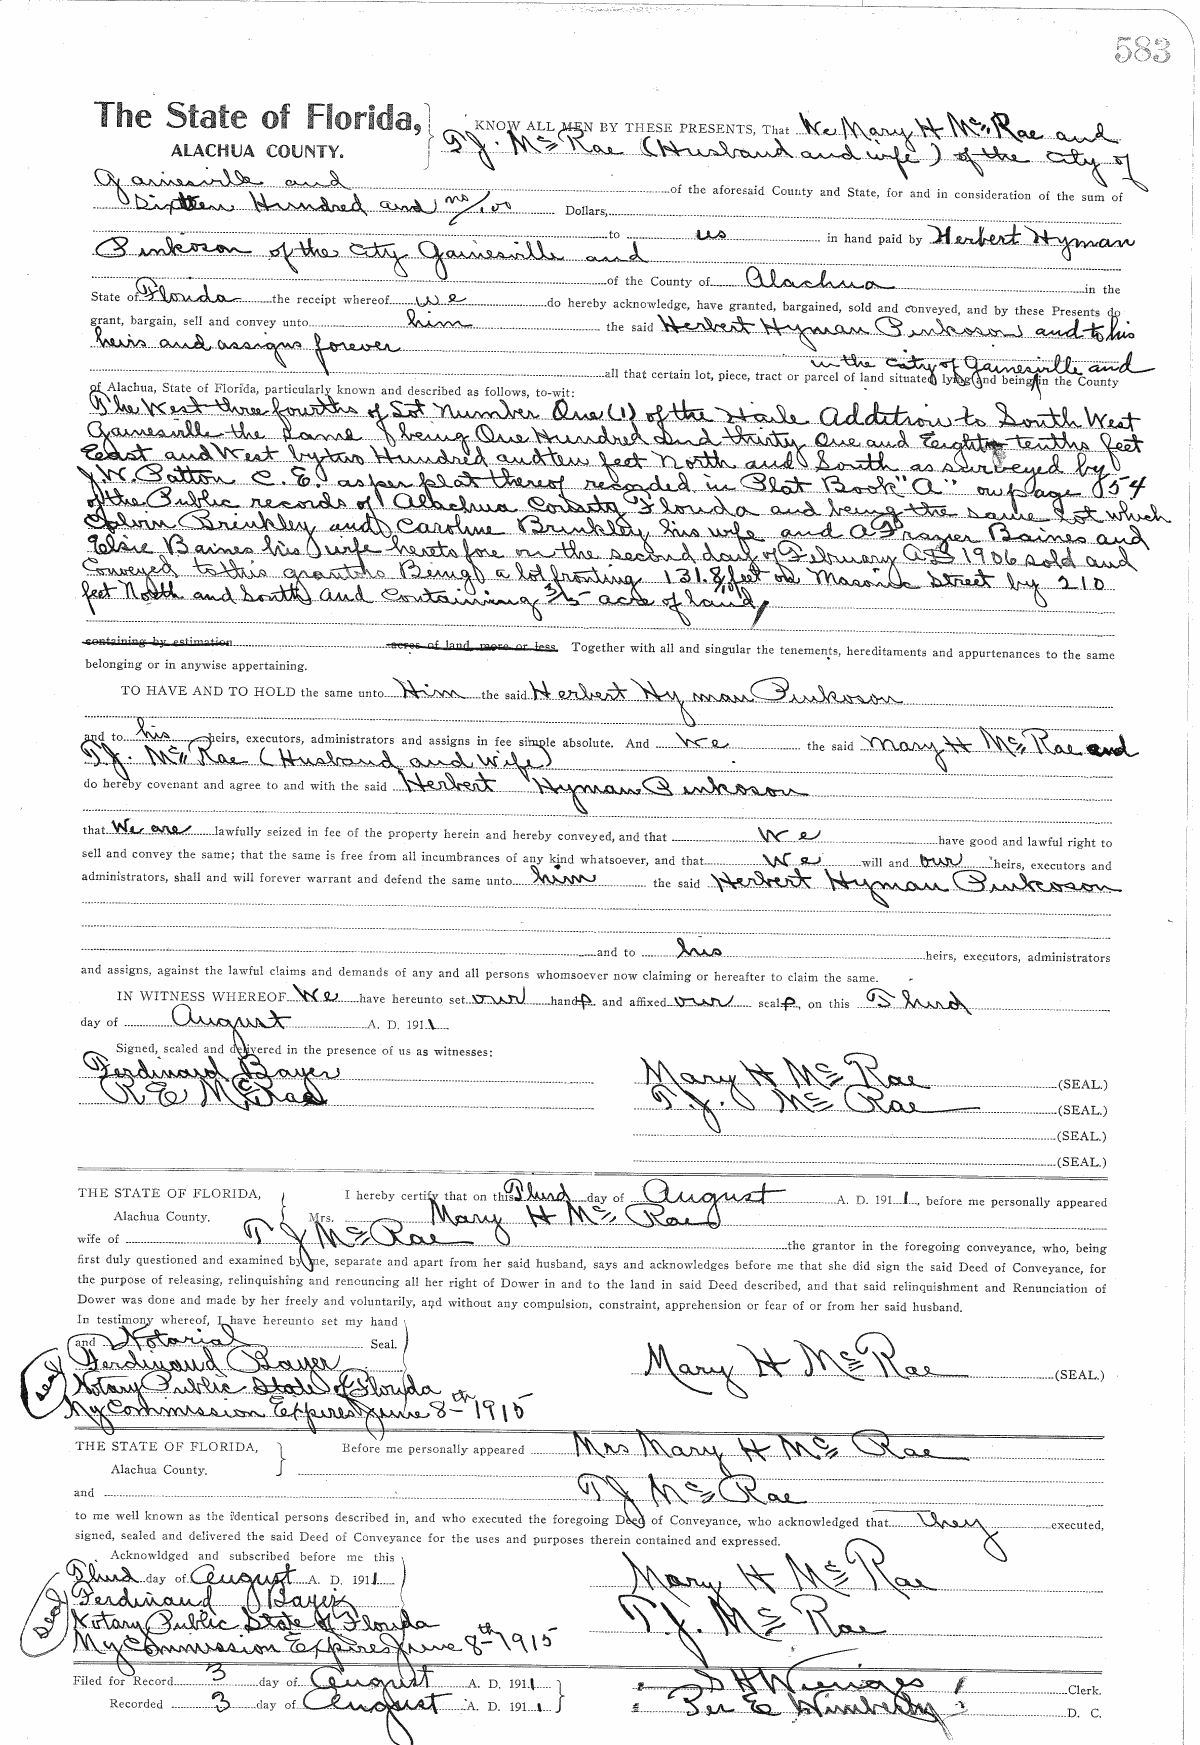 583
The State of Florida,
ALACHUA COUNTY.
KNOW ALL MEN BY THESE PRESENTS, That We Mary H McRae and
T.J. McRae (Husband and wife) of the City of
Gainesville and of the aforesaid County and State, for and in consideration of the sum of
Sixteen Hundred and no/100 Dollars,
to us in hand paid by Herbert Hyman
Pinkoson of the City Gainesville and
of the County of Alachua in the
State of Florida the receipt whereof we do hereby acknowledge, have granted, bargained, sold and conveyed, and by these Presents do
grant, bargain, sell and convey unto him the said Herbert Hyman Pinkoson and to his
heirs and assigns forever
in the city of Gainesville and
all that certain lot, piece, tract or parcel of land situated lying and being in the County
of Alachua, State of Florida, particularly known and described as follows, to-wit:
The West three fourths of Lot Number One (1) of the Haile Addition to South West
Gainesville the same being One Hundred and thirty One and Eight tenths feet
East and West by two Hundred and ten feet North and South as surveyed by
J.W. Patton C.E. as per plat thereof recorded in Plat Book "A" on page 54
of the Public records of Alachua County Florida and being the same lot which
Calvin Brinkley and Caroline Brinkley his wife and A Frazier Baines and
Elsie Baines his wife heretofore on the second day of February AD 1906 sold and
Conveyed to this grantors Being a lot fronting 131.8 feet on Masonic Street by 210
feet North and South and Containing 3/5 acre of land,
containing by estimation acres of land, more or less. Together with all and singular the tenements, hereditaments and appurtenances to the same
belonging or in anywise appertaining.
TO HAVE AND TO HOLD the same unto Him the said Herbert Hyman Pinkoson
and to his heirs, executors, administrators and assigns in fee simple absolute. And We the said Mary H McRae and
T.J. McRae (Husband and Wife)
do hereby covenant and agree to and with the said Herbert Hyman Pinkoson
that We are lawfully seized in fee of the property herein and hereby conveyed, and that We have good and lawful right to
sell and convey the same; that the same is free from all incumbrances of any kind whatsoever, and that We will and our heirs, executors and
administrators, shall and will forever warrant and defend the same unto him the said Herbert Hyman Pinkoson
and to his heirs, executors, administrators
and assigns, against the lawful claims and demands of any and all persons whomsoever now claiming or hereafter to claim the same.
IN WITNESS WHEREOF We have hereunto set our hands and affixed our seals, on this Third
day of August A. D. 1911.
Signed, sealed and delivered in the presence of us as witnesses:
Ferdinand Bayer Mary H McRae (SEAL.)
R E McRae T.J. McRae (SEAL.)
(SEAL.)
(SEAL.)
THE STATE OF FLORIDA, I hereby certify that on this Third day of August A. D. 1911, before me personally appeared
Alachua County. Mrs. Mary H McRae
wife of T J McRae the grantor in the foregoing conveyance, who, being
first duly questioned and examined by me, separate and apart from her said husband, says and acknowledges before me that she did sign the said Deed of Conveyance, for
the purpose of releasing, relinquishing and renouncing all her right of Dower in and to the land in said Deed described, and that said relinquishment and Renunciation of
Dower was done and made by her freely and voluntarily, and without any compulsion, constraint, apprehension or fear of or from her said husband.
In testimony whereof, I have hereunto set my hand
and Notarial Seal.
Ferdinand Bayer Mary H McRae (SEAL.)
Seal Notary Public State of Florida
My Commission Expires June 8th 1915
THE STATE OF FLORIDA, Before me personally appeared Mrs Mary H McRae
Alachua County.
and T J McRae
to me well known as the identical persons described in, and who executed the foregoing Deed of Conveyance, who acknowledged that they executed,
signed, sealed and delivered the said Deed of Conveyance for the uses and purposes therein contained and expressed.
Acknowldged and subscribed before me this
Third day of August A. D. 1911 Mary H McRae
Ferdinand Bayer
Seal Notary Public State of Florida T.J. McRae
My Commission Expires June 8th 1915
Filed for Record 3 day of August A. D. 1911 S H Wienges Clerk.
Recorded 3 day of August A. D. 1911. Per E Wimberly D. C.